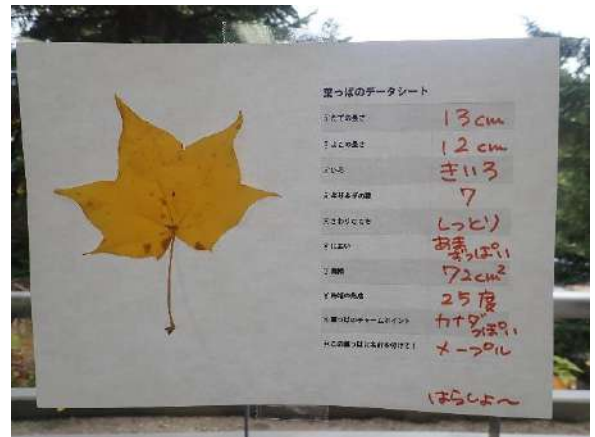 葉っぱのデータシート
たての長さ 13cm
よこの長さ 12cm
いろ きいろ
ギザギザの数 7
さわりごこち しっとり
におい あまずっぱい
面積 72cm²
角度 25度
葉っぱのチャームポイント カナダっぽい
この葉っぱに名前を付けて! メープル
はらしょ〜